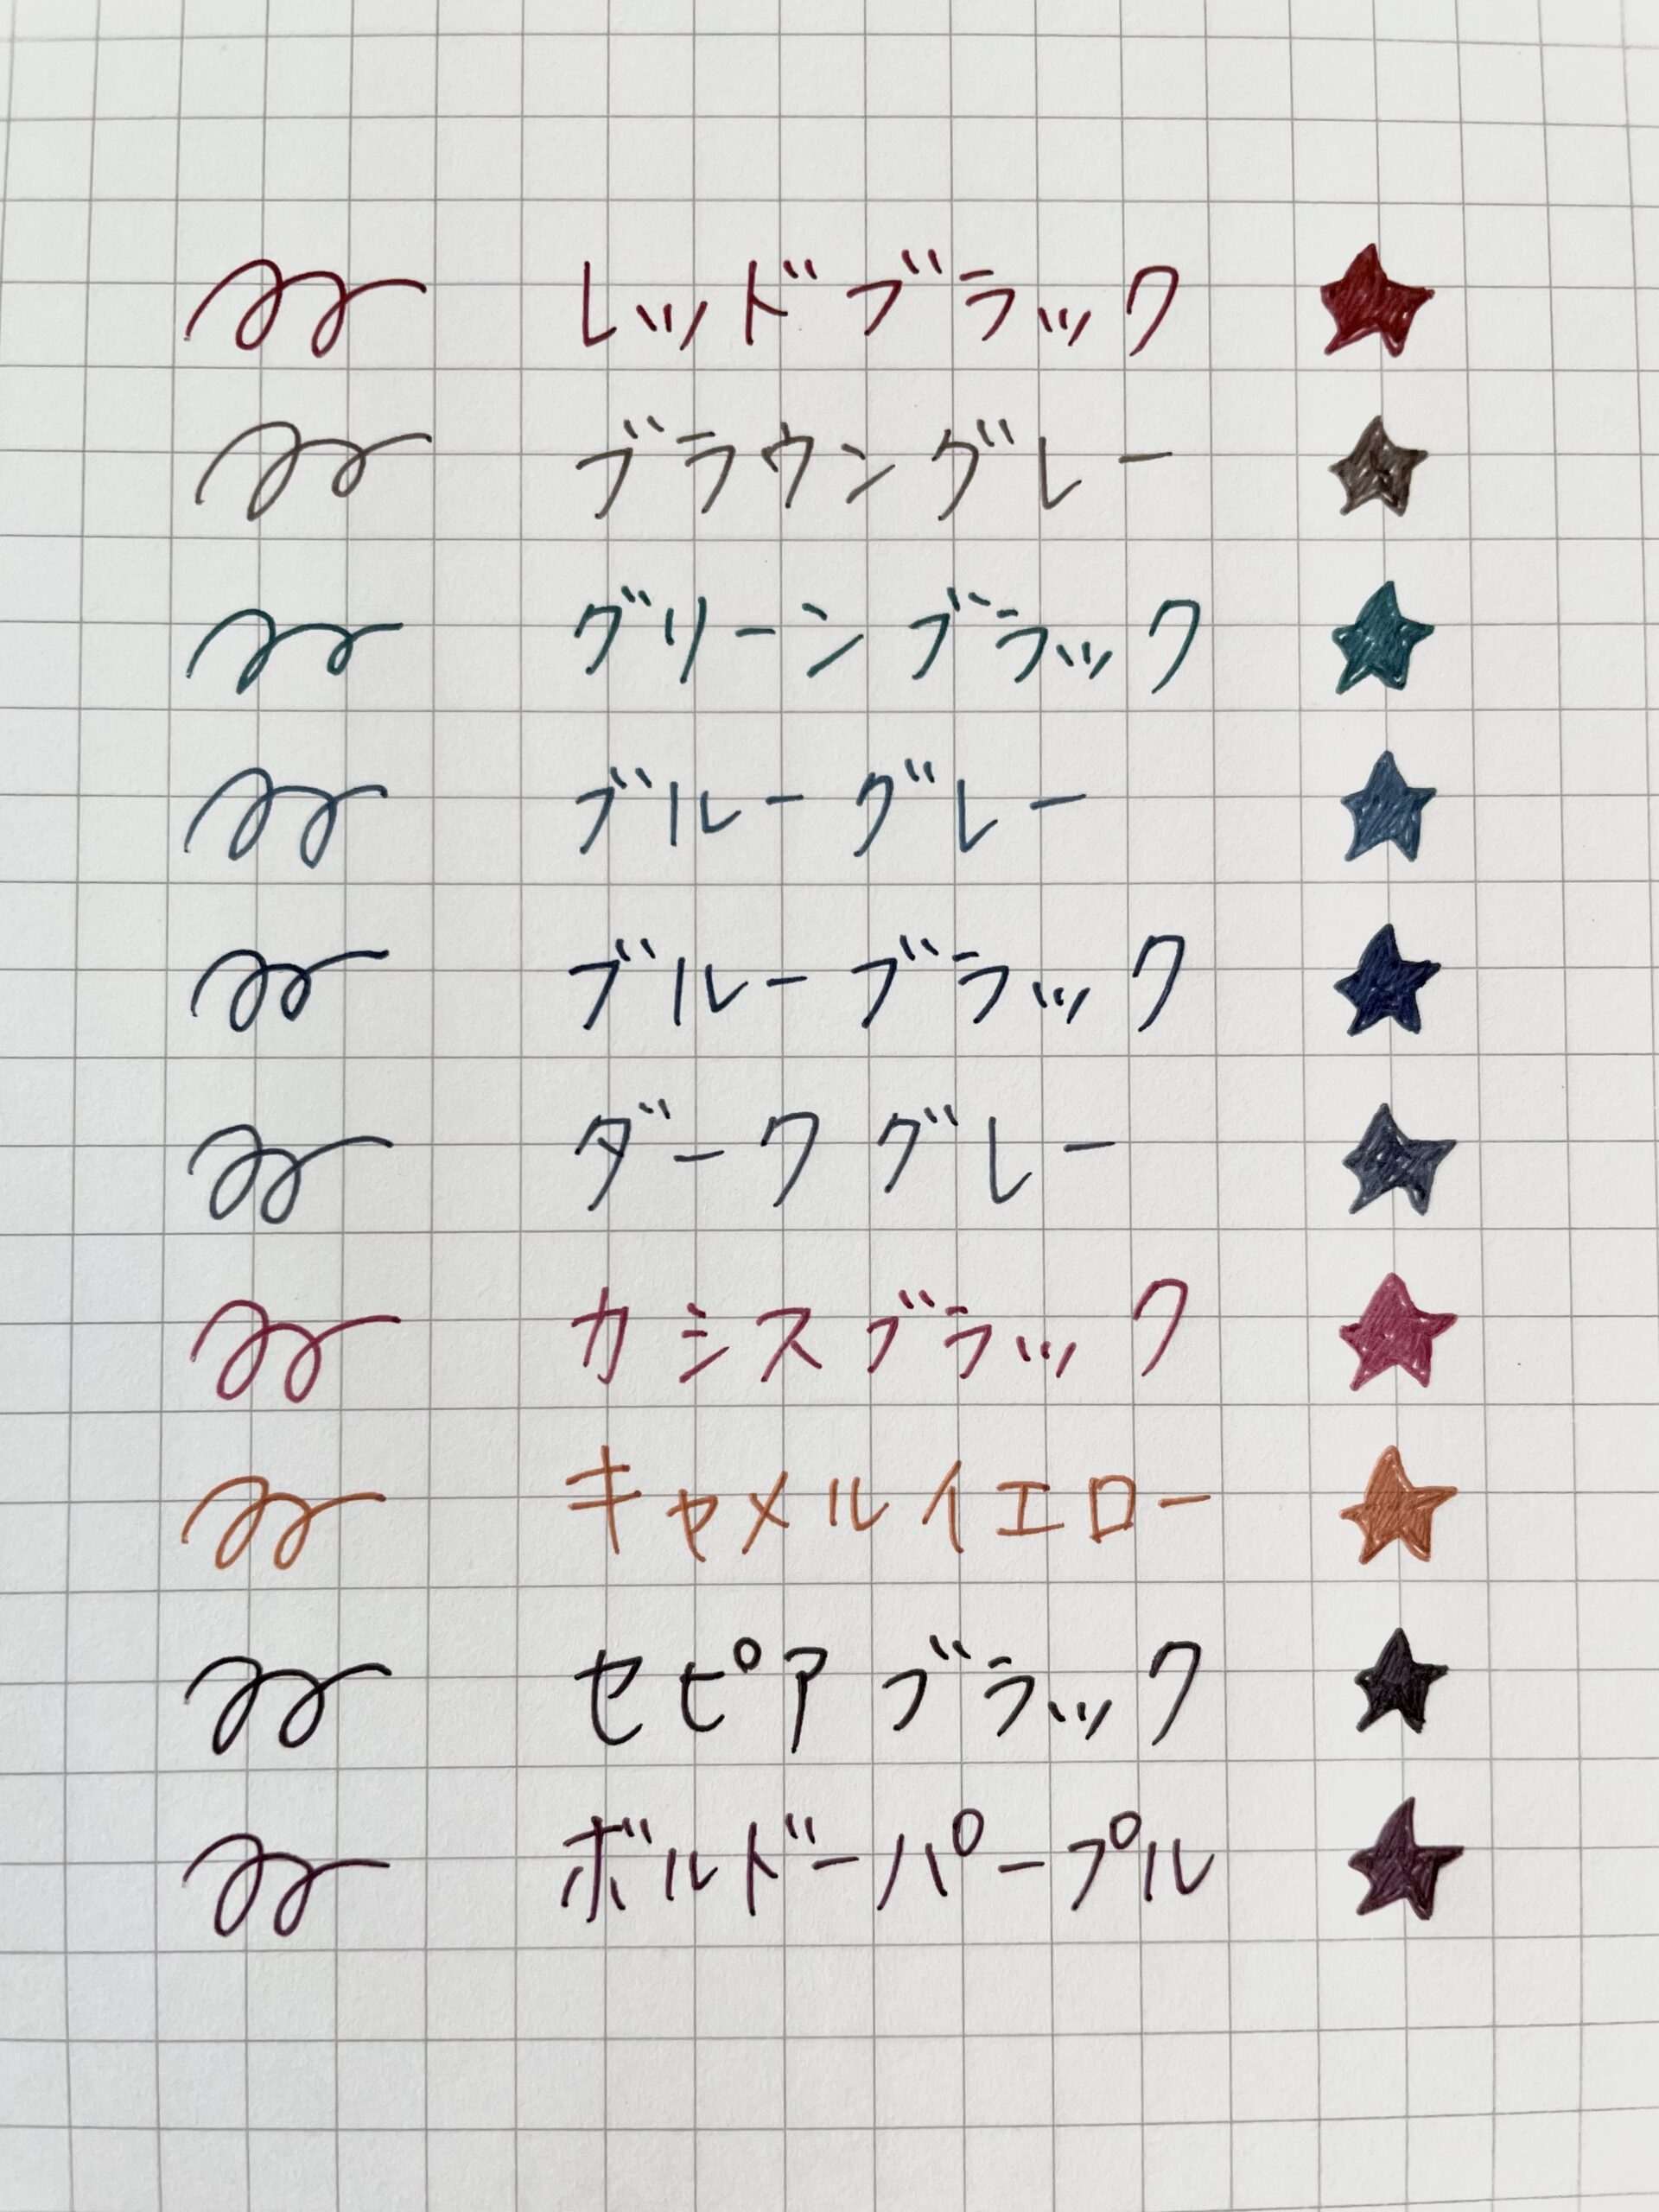 レッドブラック
ブラウングレー
グリーンブラック
ブルーグレー
ブルーブラック
ダークグレー
カシスブラック
キャメルイエロー
セピアブラック
ボルドーパープル